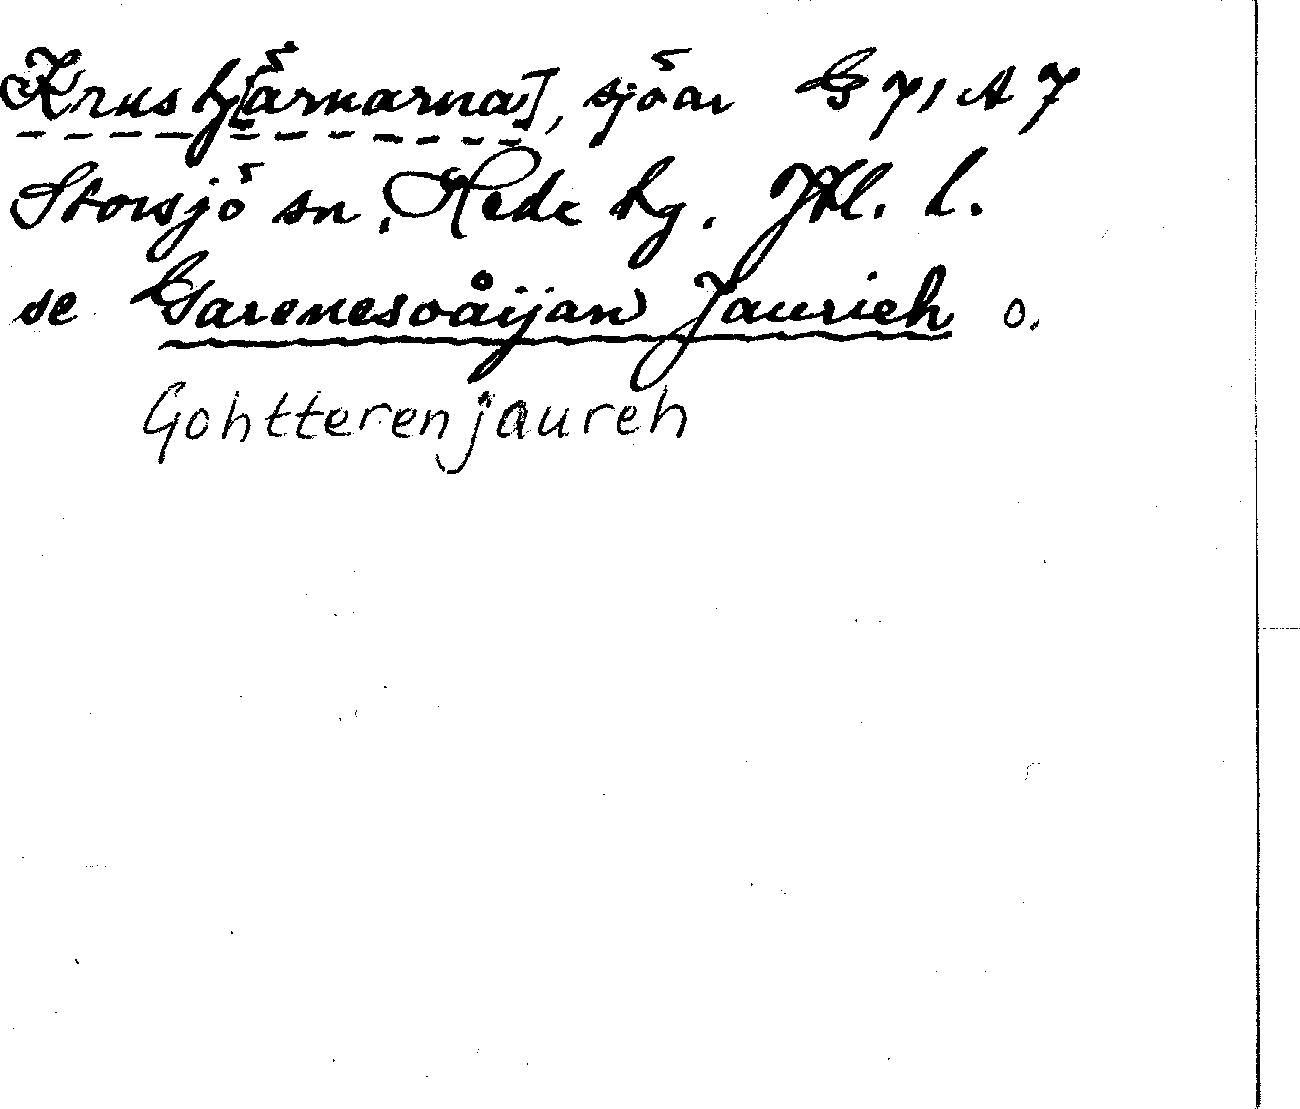 Krustj[ärnarna], sjöar G 71 A 7
Storsjö sn. Hede hg. Jtl. l.
se Garenesoåijan Jaurieh o.
Gohtterenjaureh